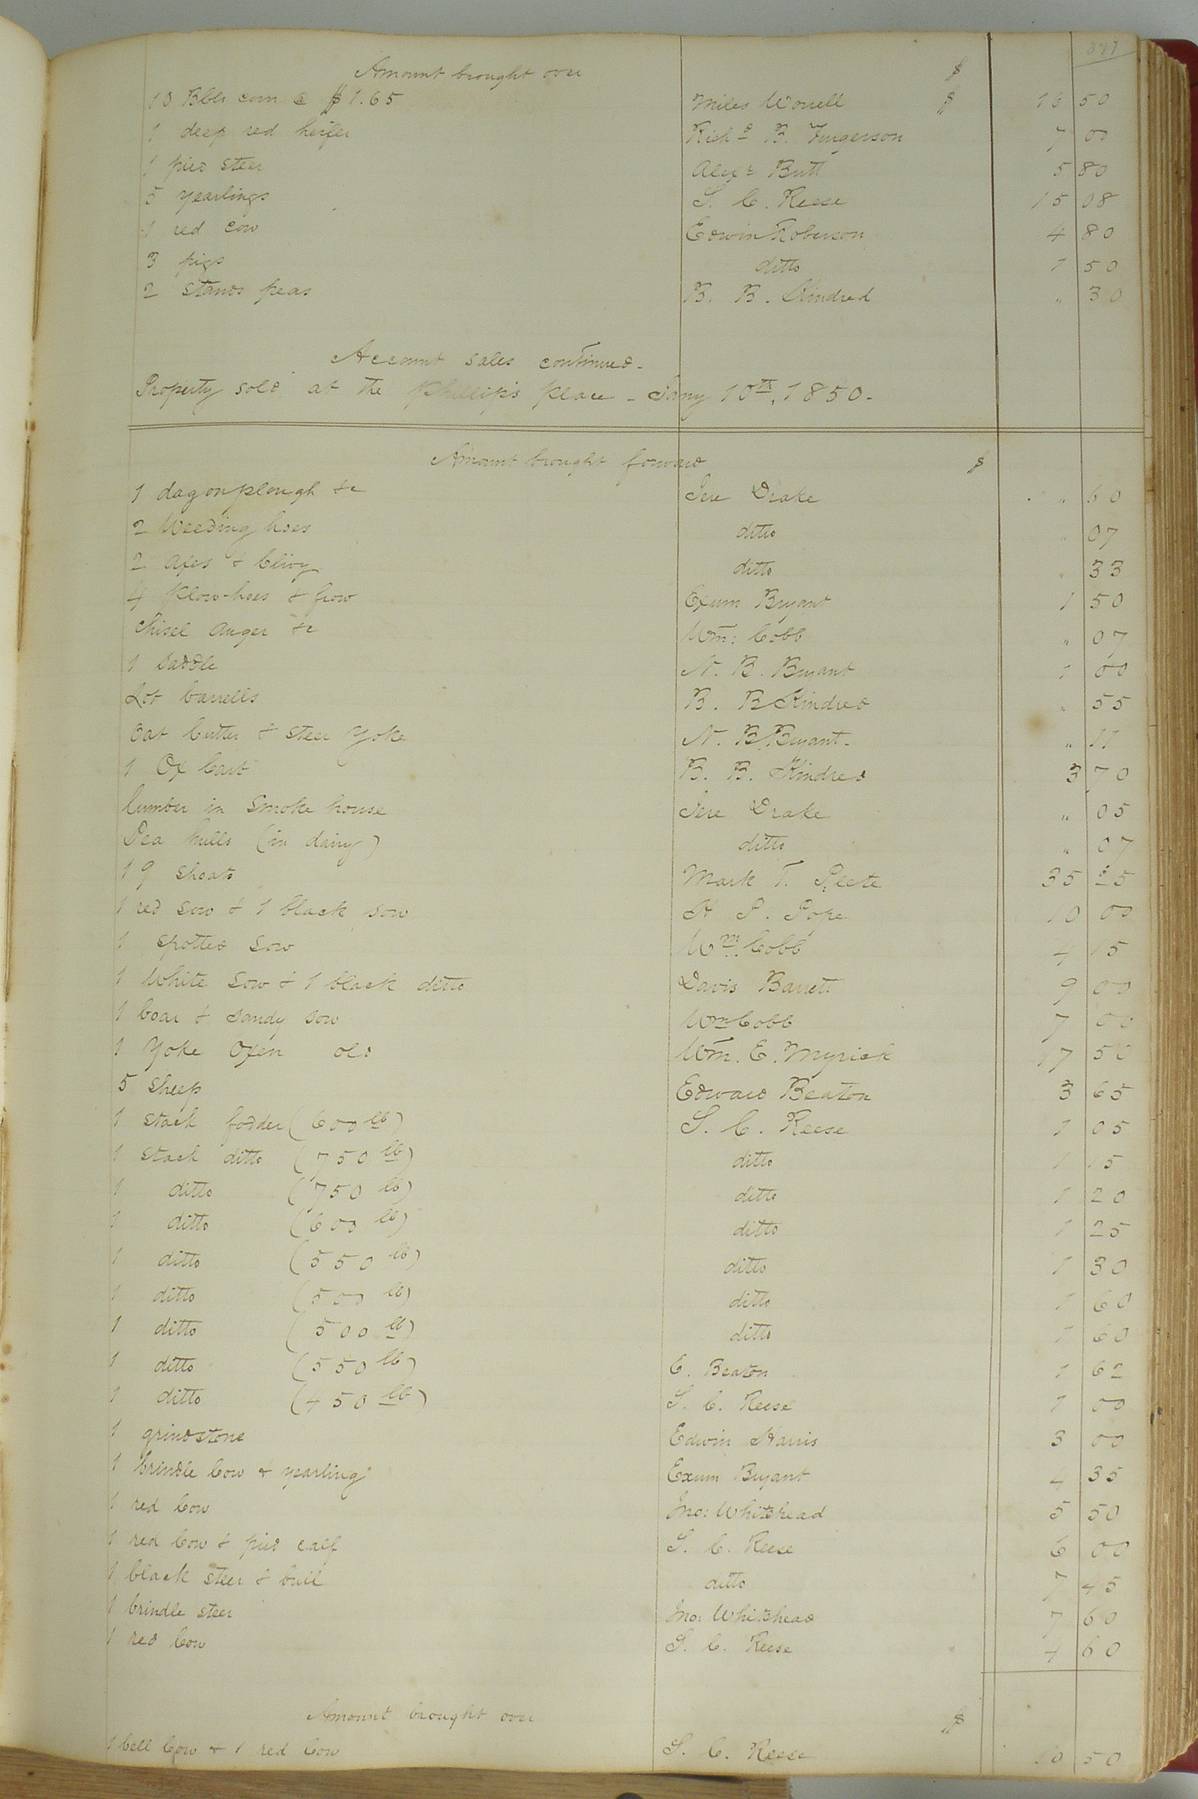 Amount brought over $
10 Bbls corn @ $1.65 Miles Worrell $ 16 50
1 deep red heifer Richd B. Furgerson 7 00
1 pied steer Alexr Butt 5 80
5 yearlings S. C. Reese 15 08
1 red cow Edwin Roberson 4 80
3 pigs ditto 1 50
2 stands peas B. B. Kindred " 30
Account sales continued.
Property sold at the Phillip's place - Jany 10th, 1850.
Amount brought forward $
1 dagonplough &c Jere Drake " 60
2 Weeding hoes ditto " 07
2 axes & Clivy ditto " 33
4 plow-hoes & frow Exum Bryant 1 50
Chisel Auger &c Wm: Cobb " 07
1 Saddle N. B. Bryant 1 00
Lot barrells B. B Kindred " 55
Oat Cutter & steer Yoke N. B. Bryant. " 11
1 Ox Cart B. B. Kindred 3 70
lumber in Smoke house Jere Drake " 05
Pea hulls (in dairy) ditto " 07
19 shoats Mark T. Peete 35 25
1 red sow & 1 black sow H. P. Pope 10 00
1 spotted Sow Wm. Cobb 4 15
1 White Sow & 1 black ditto Davis Barrett 9 00
1 boar & sandy sow Wm Cobb 7 00
1 Yoke Oxen old Wm. E. Myrick 17 50
5 sheep Edward Beaton 3 65
1 stack fodder (600 lb) S. C. Reese 1 05
1 stack ditto (750 lb) ditto 1 15
1 ditto (750 lb) ditto 1 20
1 ditto (600 lb) ditto 1 25
1 ditto (550 lb) ditto 1 30
1 ditto (500 lb) ditto 1 60
1 ditto (500 lb) ditto 1 60
1 ditto (550 lb) C. Beaton 1 62
1 ditto (450 lb) S. C. Reese 1 00
1 grindstone Edwin Harris 3 00
1 brindle Cow & yearling Exum Bryant 4 35
1 red Cow Jno: Whitehead 5 50
1 red Cow & pied calf S. C. Reese 6 00
1 black steer & bull ditto 7 45
1 brindle steer Jno: Whitehead 7 60
1 red Cow S. C. Reese 4 60
Amount brought over $
1 bell Cow & 1 red Cow S. C. Reese 10 50